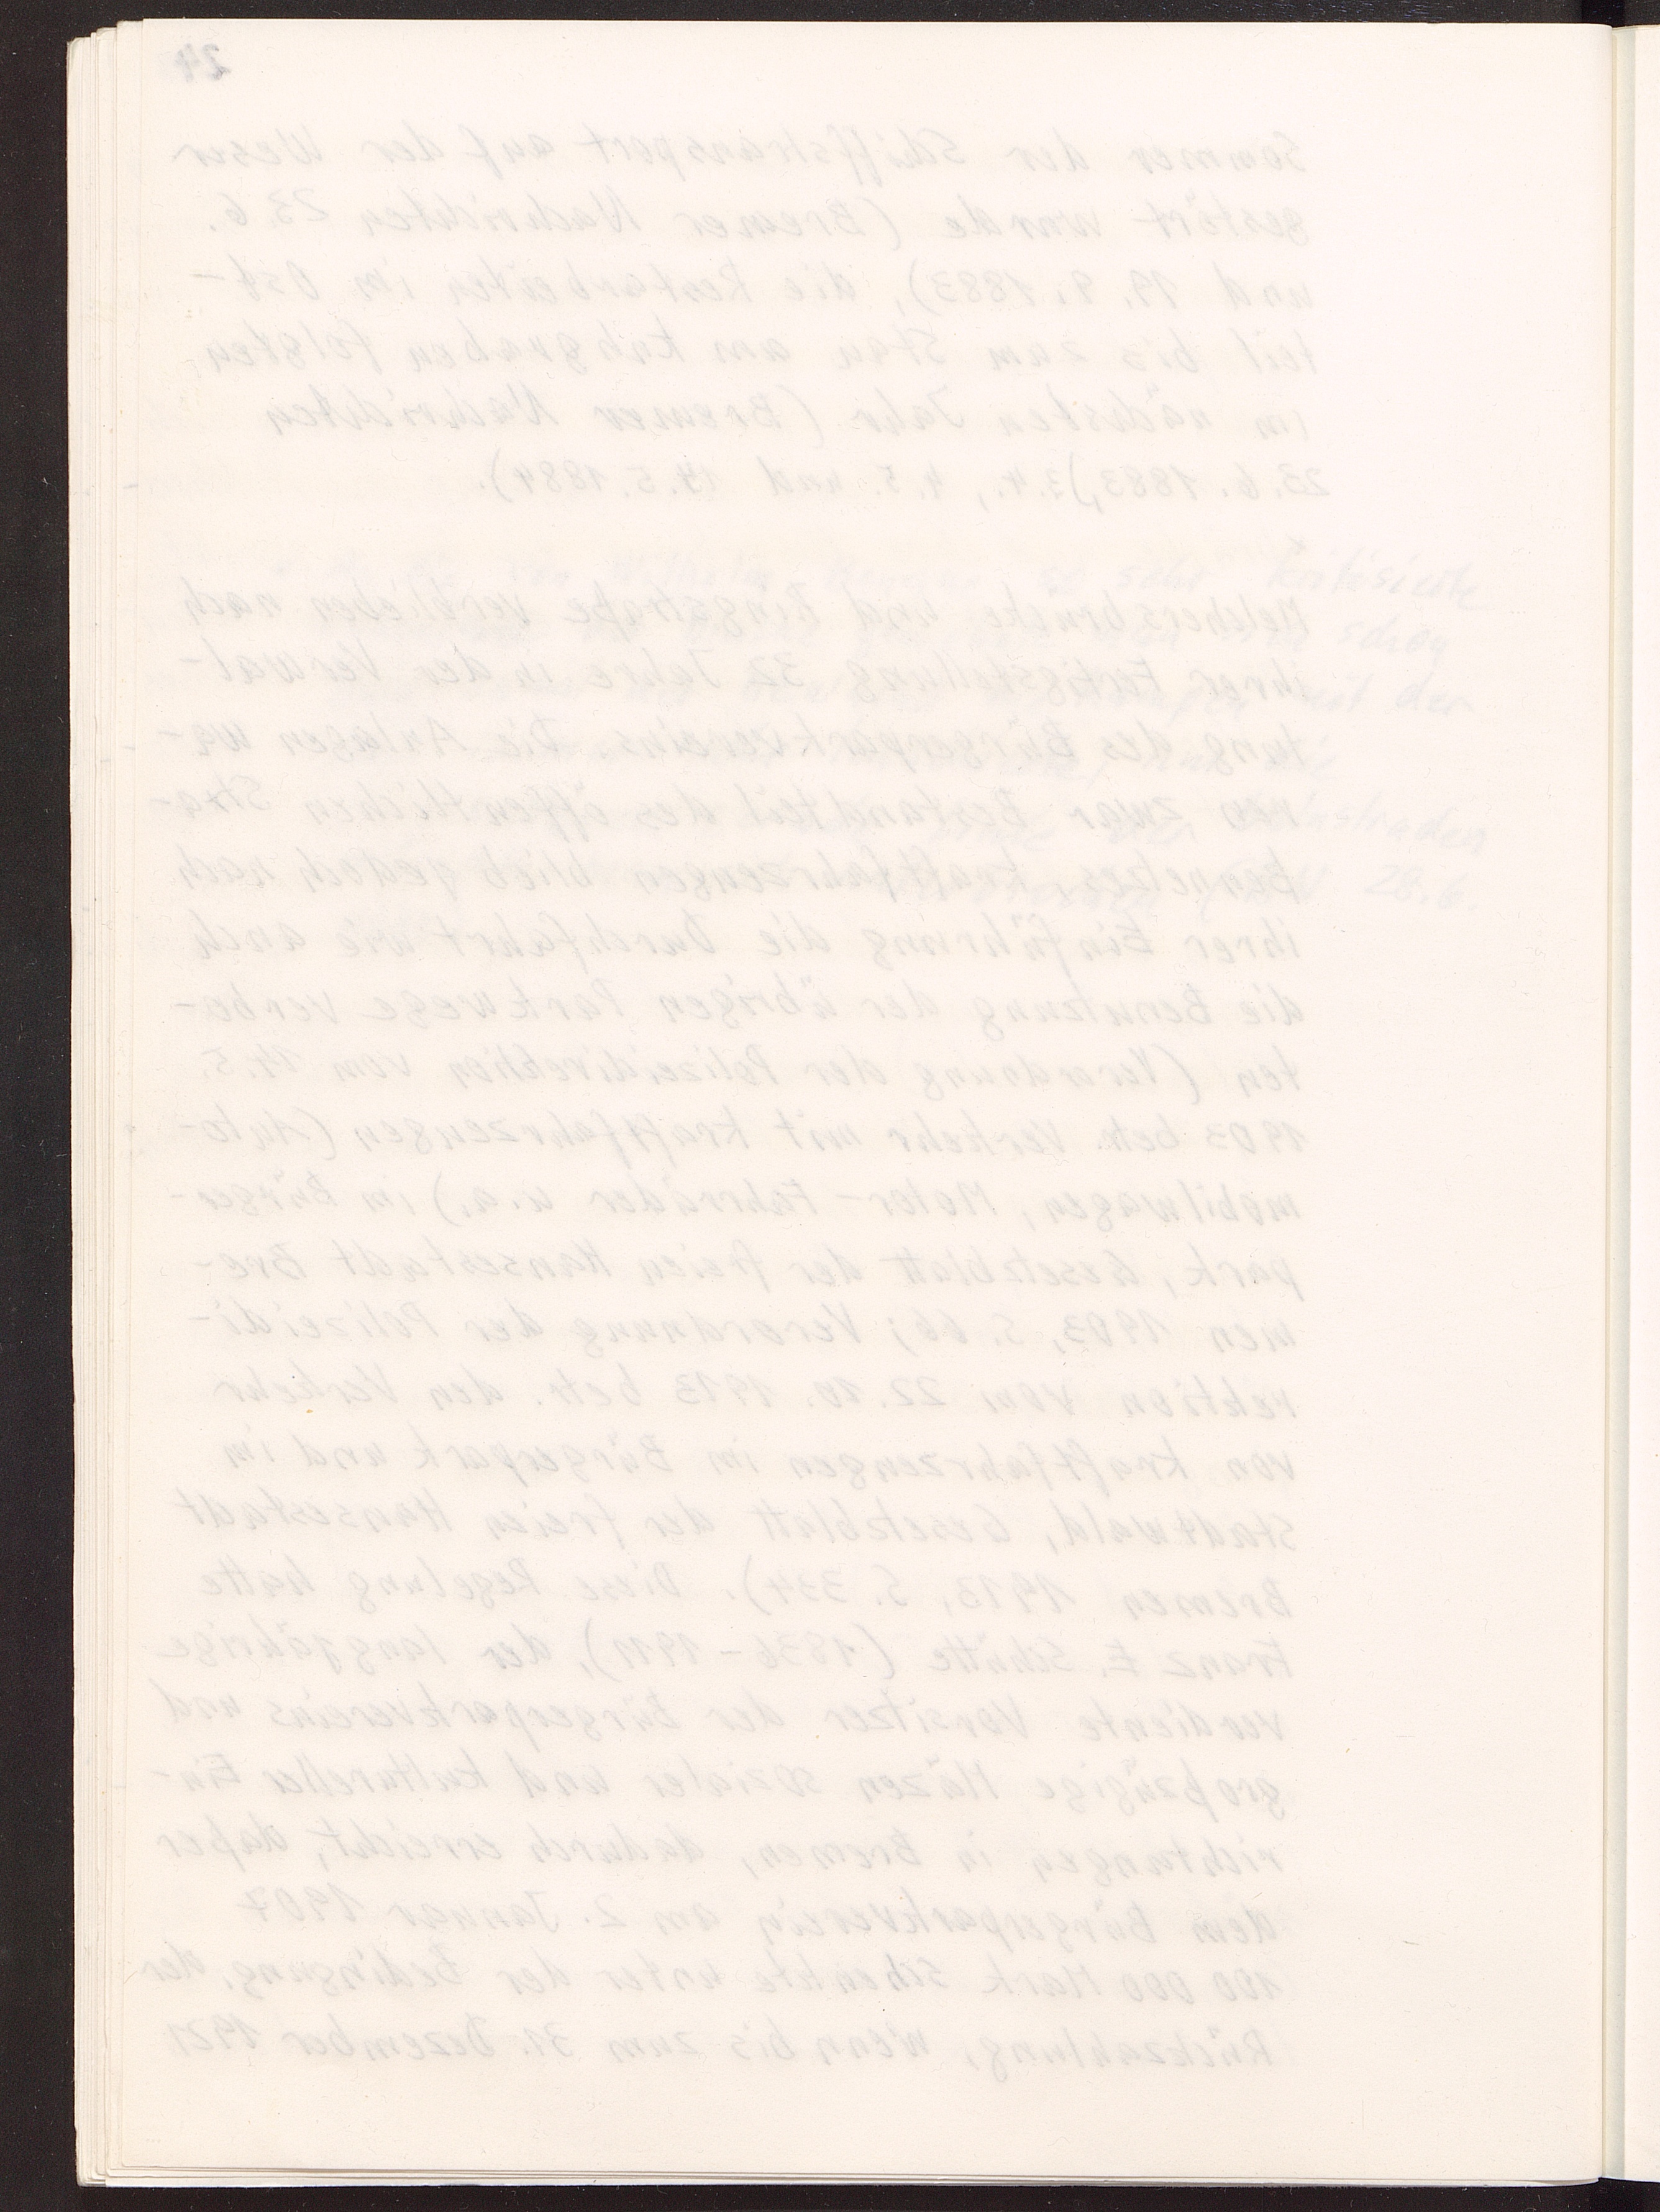 24
Sommer der Schiffstransport auf der Weser
gestört wurde (Bremer Nachrichten 23.6.
und 19. 9. 1883), die Restarbeiten im Ost-
teil bis zum Stau am Kuhgraben folgten
im nächsten Jahr (Bremer Nachrichten
23.6. 1883, 3.4., 4.5. und 14.5.1884).
Melchersbrücke und Ringstraße verblieben nach
ihrer Fertigstellung 32 Jahre in der Verwal-
tung des Bürgerparkvereins. Die Anlagen wa-
ren zwar Bestandteil des öffentlichen Stra-
ßennetzes, Kraftfahrzeugen blieb jedoch nach
ihrer Einführung die Durchfahrt wie auch
die Benutzung der übrigen Parkwege verbo-
ten (Verordnung der Polizeidirektion vom 14.5.
1903 betr. Verkehr mit Kraftfahrzeugen (Auto-
mobilwagen, Motor-Fahrräder u.a.) im Bürger-
park, Gesetzblatt der freien Hansestadt Bre-
men 1903, S. 66; Verordnung der Polizeidi-
rektion vom 22.10. 1913 betr. den Verkehr
von Kraftfahrzeugen im Bürgerpark und im
Stadtwald, Gesetzblatt der freien Hansestadt
Bremen 1913, S. 334). Diese Regelung hatte
Franz E. Schütte (1836-1911), der langjährige
verdiente Vorsitzer der Bürgerparkvereins und
großzügige Mäzen sozialer und kultureller Ein-
richtungen in Bremen, dadurch erreicht, daß er
dem Bürgerparkverein am 2. Januar 1907
100 000 Mark schenkte unter der Bedingung, der
Rückzahlung, wenn bis zum 31. Dezember 1921
sehr kritisierte
schon
der
28.6.